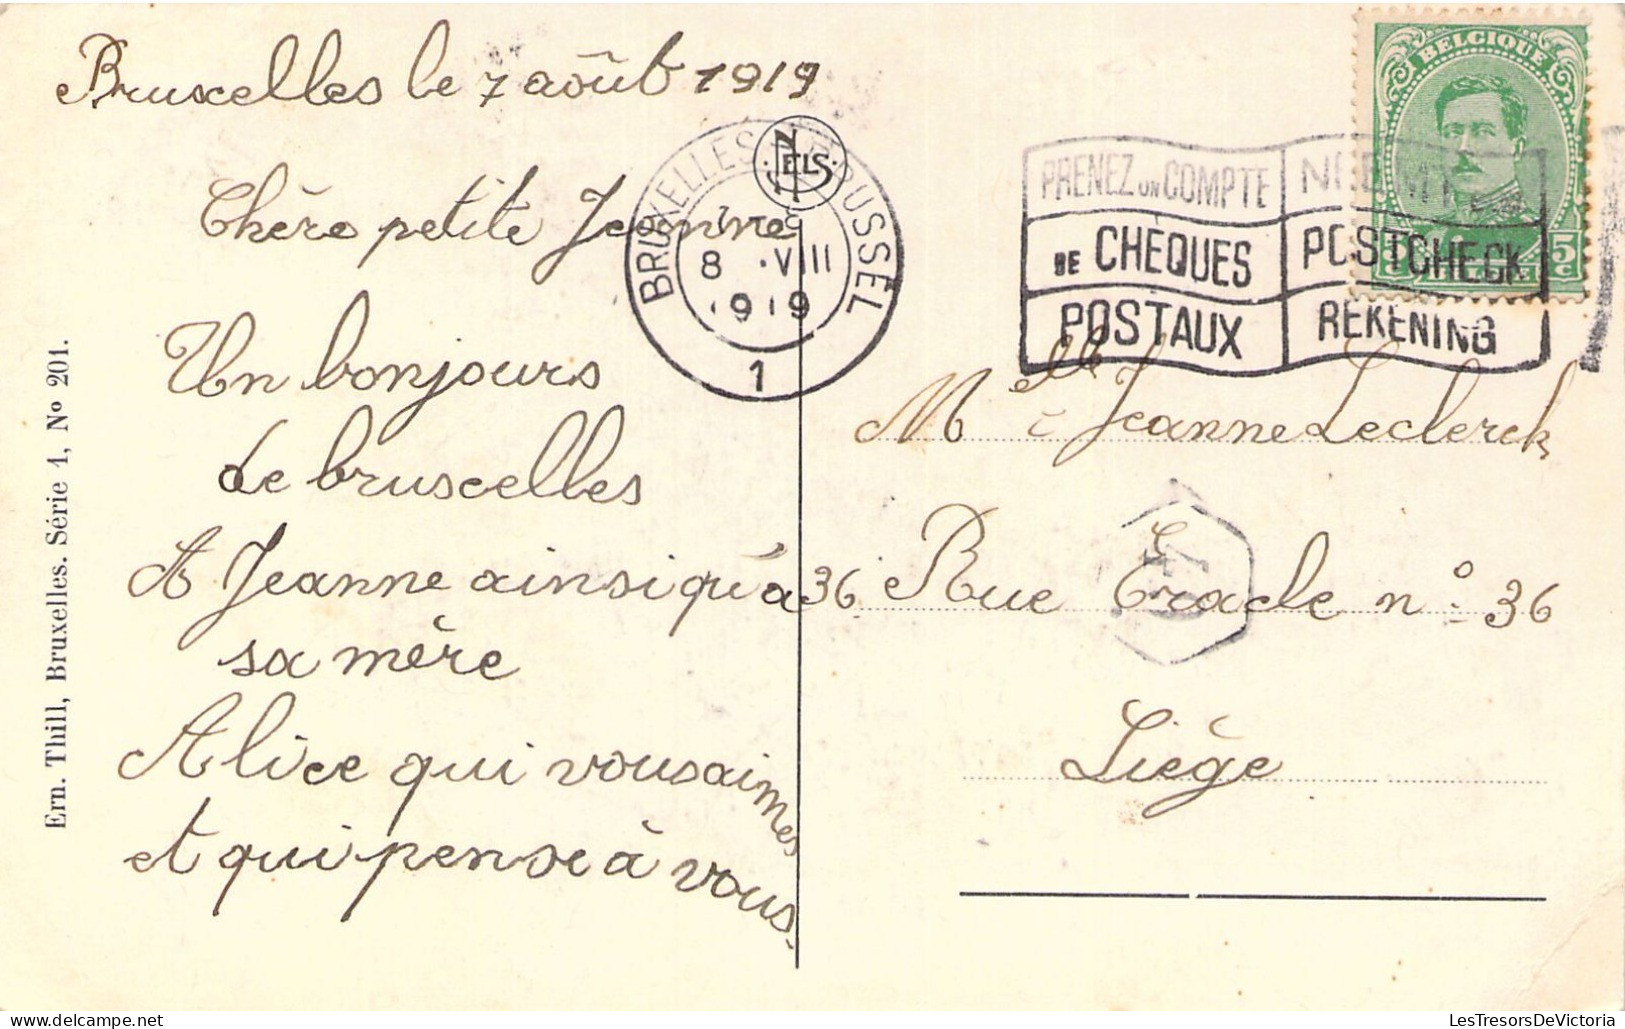 Bruxelles le 7 août 1919
Chère petite Jeanne
Un bonjours
de bruxelles
A Jeanne ainsi qu'a
sa mère
Alice qui vous aimes
et qui pense à vous.
Ern. Thill, Bruxelles. Série 1, No 201.
NELS
BRUXELLES BRUSSEL
8 VIII
1919
1
PRENEZ UN COMPTE
DE CHEQUES
POSTAUX
NEEMT EEN
POSTCHECK
REKENING
BELGIQUE
5c
Melle Jeanne Leclerck
36 Rue Gracle n° 36
Liège
LesTresorsDeVictoria.com